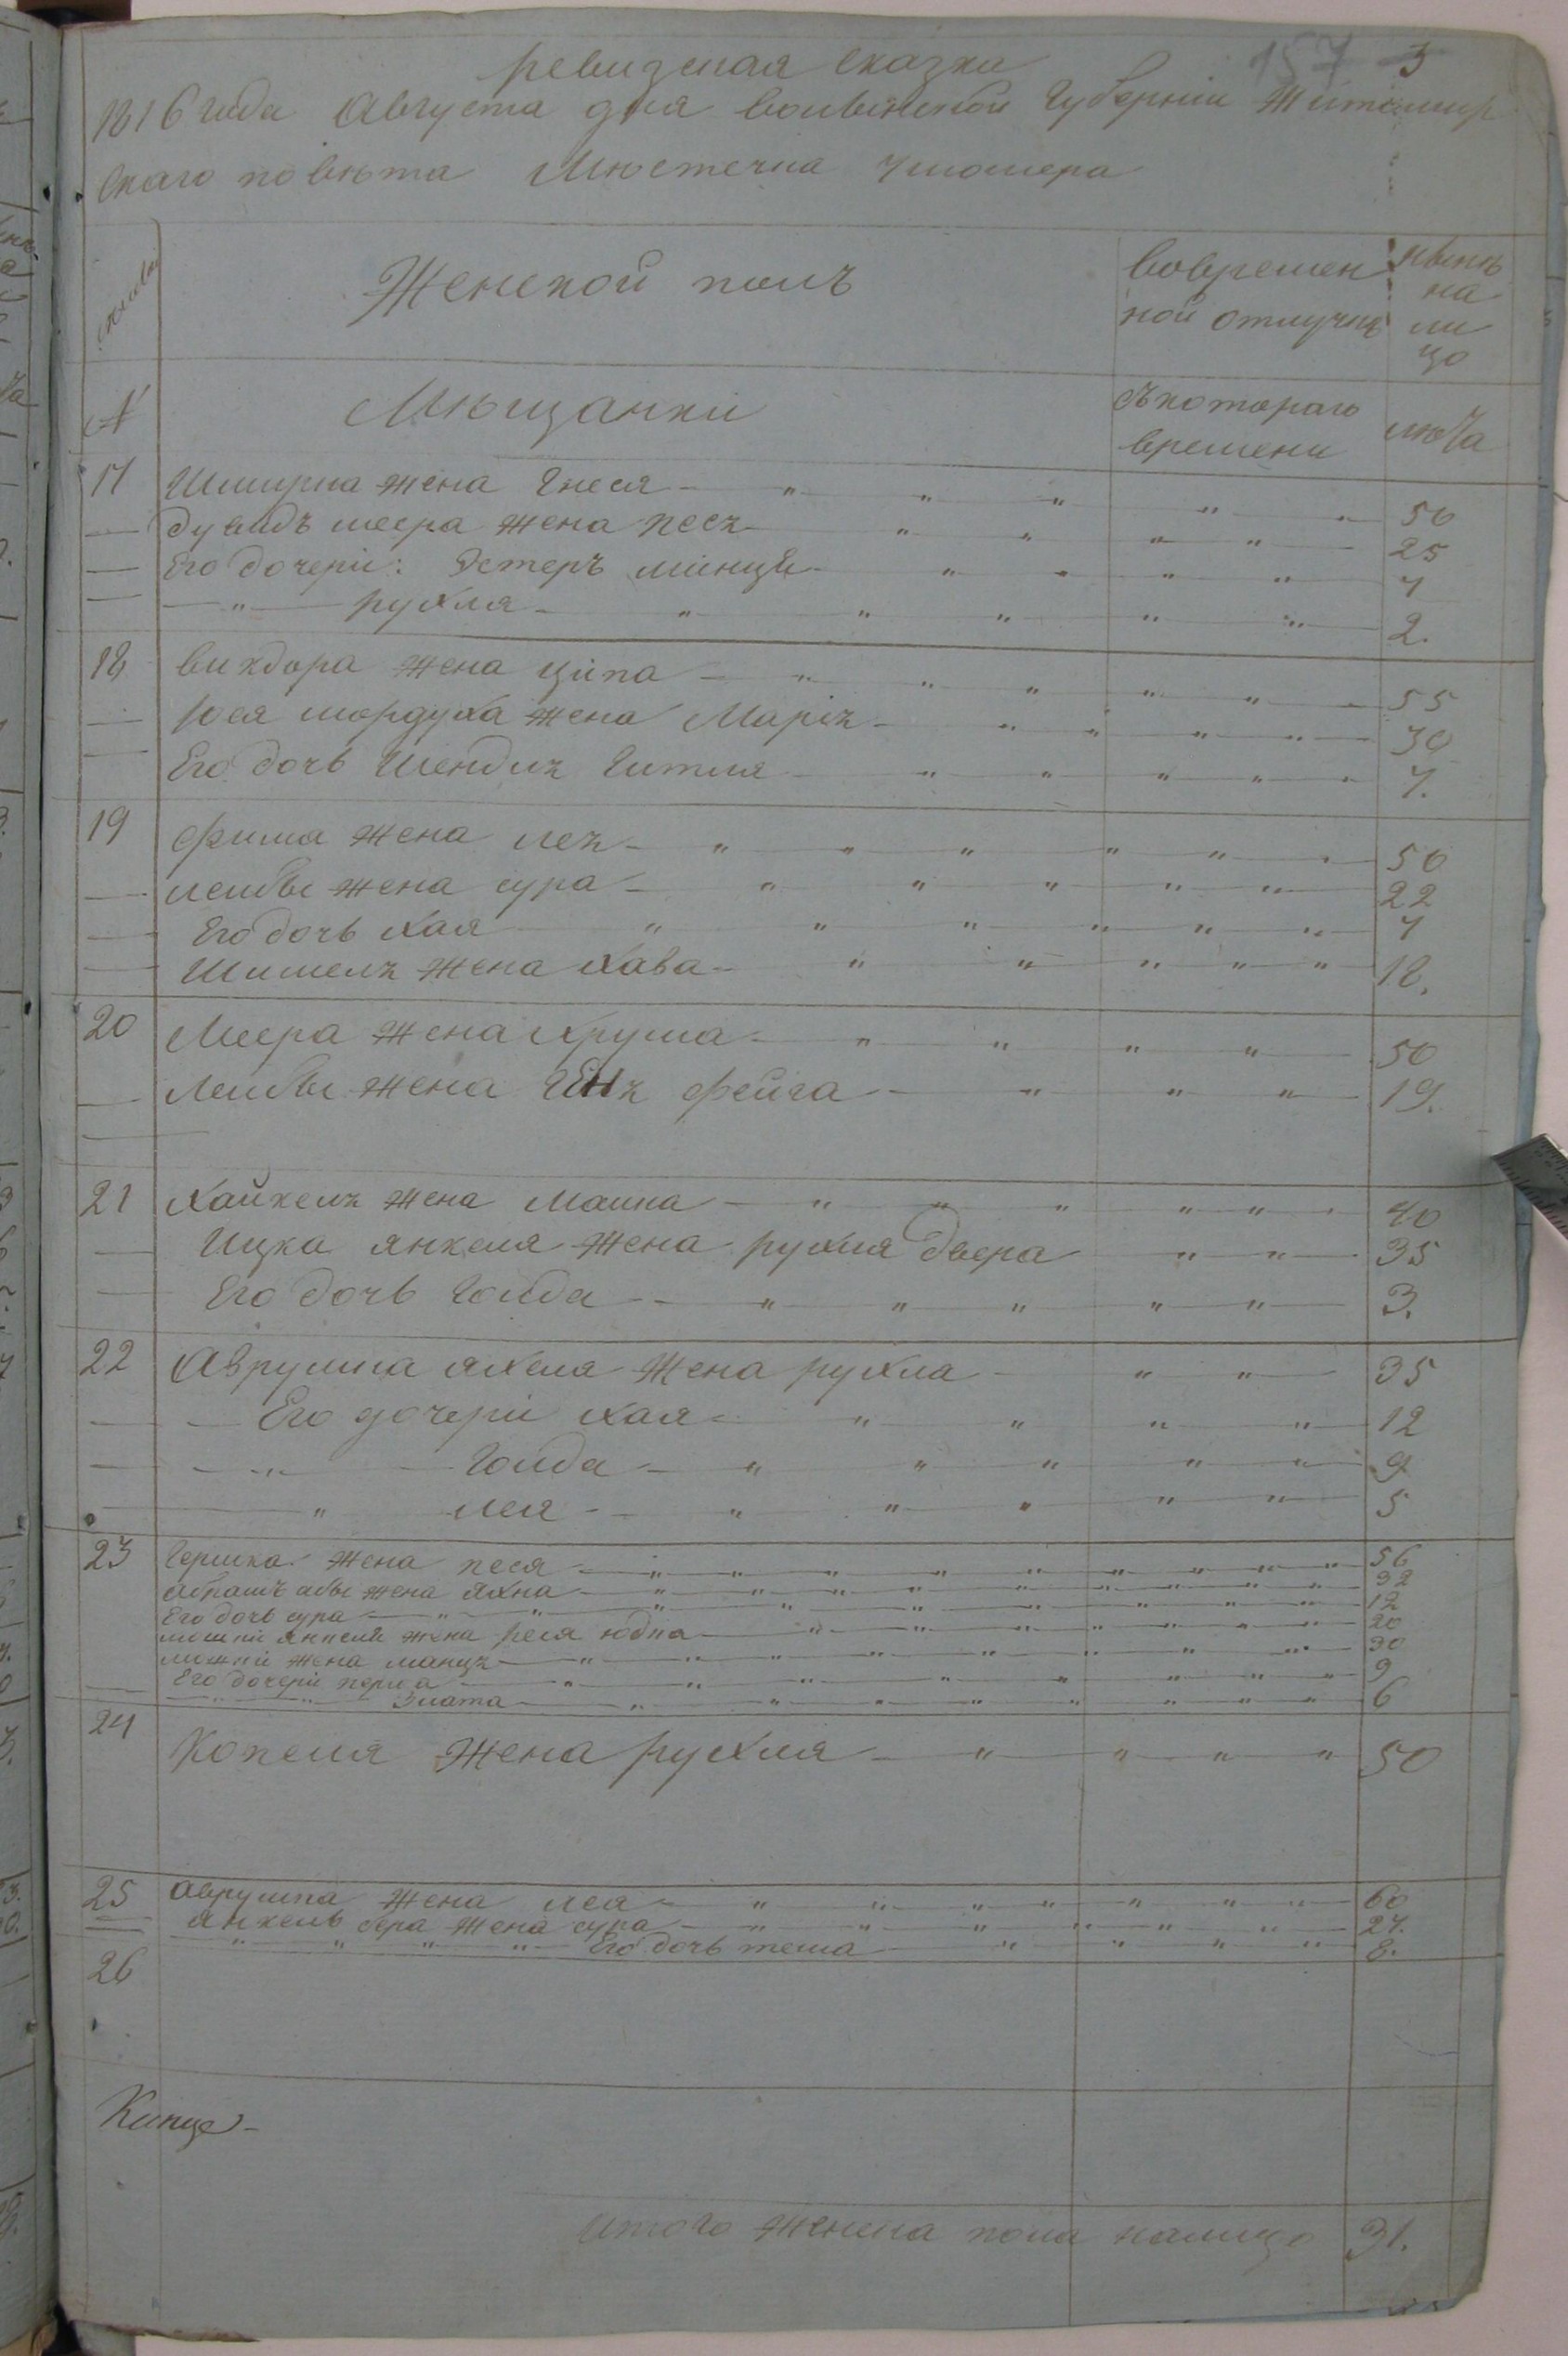 157 3
ревизская сказка
1816 года Августа дня волынской Губерніи Житомир
скаго повѣта Мѣстечка
Женской полъ
вовремен
ной отлучкѣ
нынѣ
на
ли
цо
№
Мѣщанки
съкотораго
времени
лѣта
17 Шмирка жена Гнеся 50
— дувидъ меера жена песѣ 25
— Его дочери: Эстеръ минцѣ 4
— рухля 2.
18 вихдора жена ципа 55
— Иося мордуха жена Маріѣ 30
— Его дочь Шендлѣ Гитля 4.
19 фима жена леѣ 50
— лейбы жена сура 22
— Его дочь хая 4
— Шмилѣ жена хава 18.
20 Меера жена Хрума 50
— Лейбы жена фейга 19.
21 Хайкелѣ жена Малка 40
— Ицка янкеля жена рухля двера 35
— Его дочь Голда 3.
22 Аврумка жена рухла 35
— Его дочери хая 12
— Голда 9
— лея 5
23 Гершка жена песя 56
жена яхна 32
Его дочь сура 12
мошки янкеля жена рейзя юдка 20
мошки жена манцѣ 30
Его дочери перла 9
— Злата 6
24 Копеля жена рухля 50
25 Аврумка жена лея 60
— янкель бера жена сура 24.
Его дочь тема 8.
26
итого женска пола налицо 31.